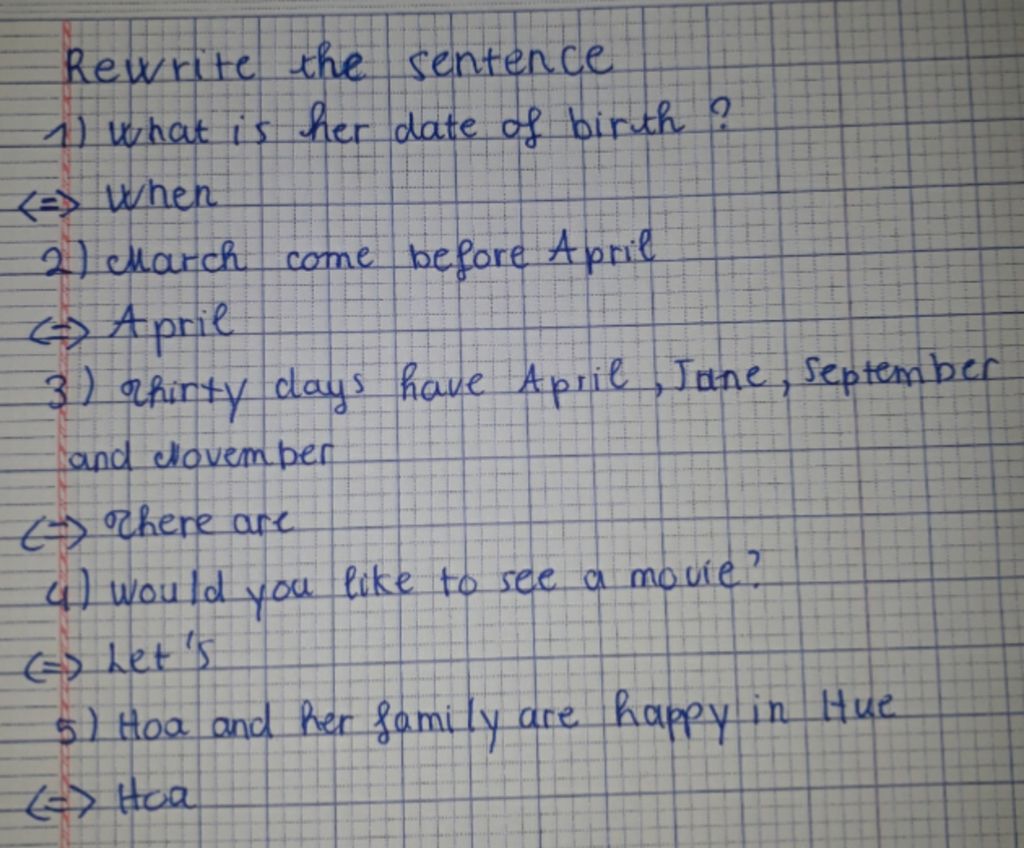 Rewrite the sentence
1) What is her date of birth ?
<=> When
2) March come before April
<=> April
3) Thirty days have April, Jane, September
and November
<=> There are
4) Would you like to see a movie?
<=> Let's
5) Hoa and her family are happy in Hue
<=> Hoa